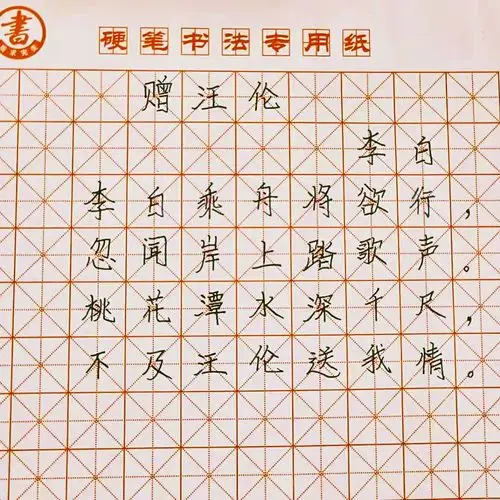 書
硬笔书法专用纸
赠汪伦
李白
李白乘舟将欲行，
忽闻岸上踏歌声。
桃花潭水深千尺，
不及汪伦送我情。